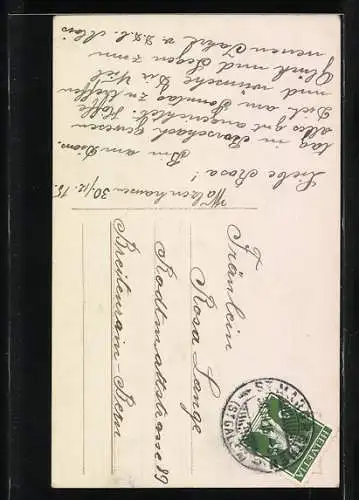 Walzenhausen 30./12. 15.
Liebe Rosa!
Bin am Dons-
tag in Rorschach gewesen
alles gut angerichtet. Hoffe
Dich am Sonntag zu treffen
und wünsche Dir Viel
Glück und Segen zum
neuen Jahre
Fräulein
Rosa Lange
Rodtmattstrasse 89
Breitenrain-Bern
HELVETIA